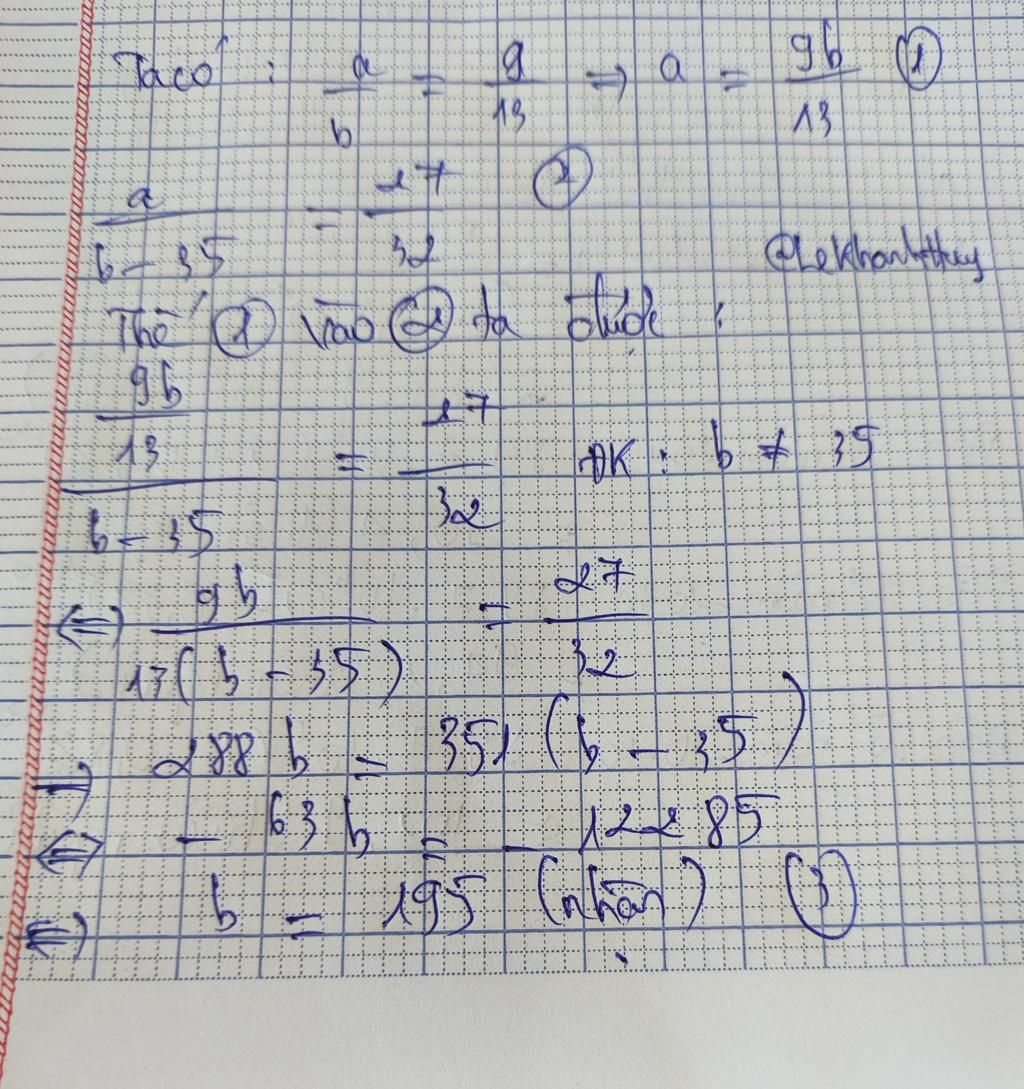 Ta có : a/b = 9/13 => a = 9b/13 ①
a/(b - 35) = 27/32 ②
@LeKhanhHuy
Thế ① vào ② ta được :
(9b/13)/(b - 35) = 27/32 ĐK : b ≠ 35
<=> 9b/(13(b - 35)) = 27/32
=> 288 b = 351 (b - 35)
<=> - 63 b = - 12285
<=> b = 195 (nhận) (3)